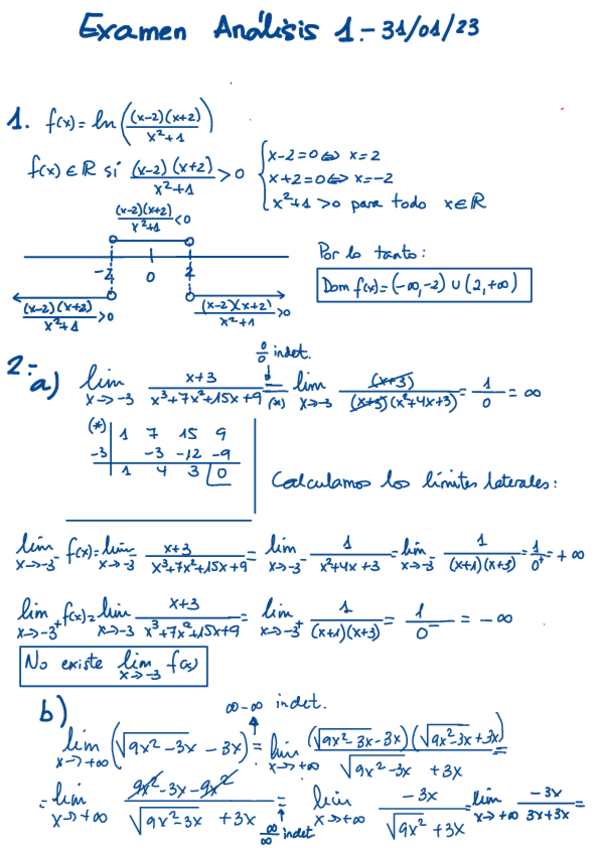 Examen Análisis 1.- 31/01/23
1. f(x) = ln((x-2)(x+2)/(x²+1))
f(x) ∈ ℝ si (x-2)(x+2)/(x²+1) > 0 { x-2=0 ⇔ x=2
x+2=0 ⇔ x=-2
x²+1 >0 para todo x∈ℝ
(x-2)(x+2)/(x²+1) < 0
-2 0 2
Por lo tanto:
Dom f(x) = (-∞,-2) ∪ (2,+∞)
(x-2)(x+2)/(x²+1) > 0 (x-2)(x+2)/(x²+1) > 0
0/0 indet.
2.- a) lim x→-3 (x+3)/(x³+7x²+15x+9) = (*) lim x→-3 (x+3)/((x+3)(x²+4x+3)) = 1/0 = ∞
(*) 1 7 15 9
-3 -3 -12 -9
1 4 3 0
Calculamos los límites laterales:
lim x→-3⁻ f(x) = lim x→-3 (x+3)/(x³+7x²+15x+9) = lim x→-3⁻ 1/(x²+4x+3) = lim x→-3⁻ 1/((x+1)(x+3)) = 1/0⁺ = +∞
lim x→-3⁺ f(x) = lim x→-3 (x+3)/(x³+7x²+15x+9) = lim x→-3⁺ 1/((x+1)(x+3)) = 1/0⁻ = -∞
No existe lim x→-3 f(x)
b) ∞-∞ indet.
lim x→+∞ (√(9x²-3x) - 3x) = lim x→+∞ (√(9x²-3x)-3x)(√(9x²-3x)+3x)/(√(9x²-3x) + 3x) =
= lim x→+∞ (9x²-3x-9x²)/(√(9x²-3x) + 3x) = ∞/∞ indet lim x→+∞ -3x/(√(9x²) + 3x) = lim x→+∞ -3x/(3x+3x) =